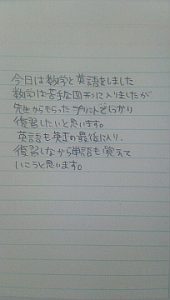 今日は数学と英語をしました
数学は苦手な図形に入りましたが
先生からもらったプリントでしっかり
復習したいと思います。
英語も英語の最後に入り、
復習しながら単語も覚えて
いこうと思います。